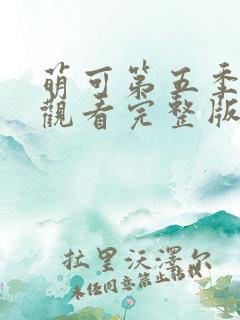 萌可第五季
觀看完整版
拉里沃澤尔
未经同意禁止转载